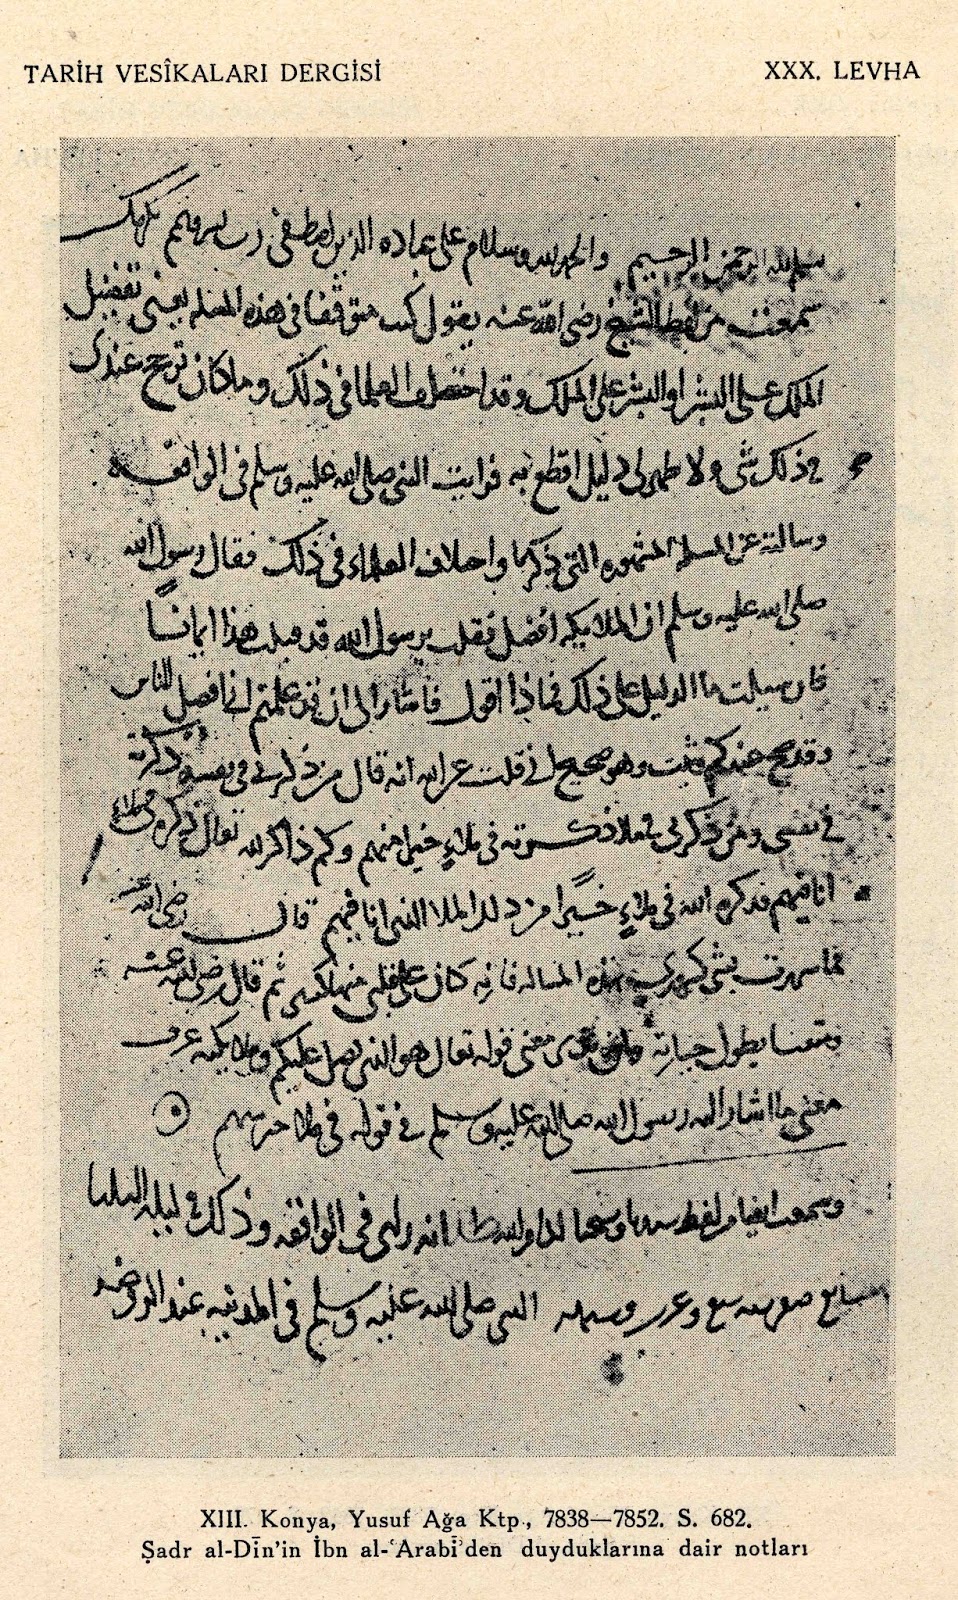 TARİH VESÎKALARI DERGİSİ
XXX. LEVHA
بسم الله الرحمن الرحيم والحمد لله وسلام على عباده الذين اصطفى رب يسر وتمم بكرمك
سمعت من لفظ الشيخ رضى الله عنه يقول كنت متوقفا فى هذه المسله يعنى تفضيل
الملك على البشر او البشر على الملك وقد اختلف العلما فى ذلك وما كان ترجح عندى
فى ذلك شى ولا ظهر لى دليل اقطع به فرايت النبى صلى الله عليه وسلم فى الواقعه
وسالته عن المسلة المشهوره التى ذكرنا واختلاف العلماء فى ذلك فقال رسول الله
صلى الله عليه وسلم ان الملايكه افضل فقلت يرسول الله قد قبلت هذا ايمانا
فان سيلت ما الدليل على ذلك فماذا اقول فاشار الى ان قد علمتم انى افضل الناس
وقد صح عندكم وثبت وهو صحيح انى قلت عن الله انه قال من ذكرنى فى نفسه ذكرته
فى نفسى ومن ذكرنى فى ملا ذكرته فى ملاء خير منهم وكم ذاكر لله تعالى ذكره فى ملاء
انا فيهم فذكره الله فى ملاء خير من ذلك الملا الذى انا فيهم قال رضى الله عنه
فما سررت بشى كسرورى بهذه المساله فانه كان على قلبى منها ثم قال رضى الله عنه
ومتعنا بطول حياته معنى قوله تعالى هو الذى يصلى عليكم وملايكته عرف
معنى ما اشار اليه رسول الله صلى الله عليه وسلم فى قوله فى ملا خير منهم
وسمعت ايضا من لفظ سيدنا وشيخنا انه راى فى الواقعه وذلك فى ليله الثلثا
سابع صفر سنه سبع وعشرين وستمايه النبى صلى الله عليه وسلم فى المدينه عند الروضه
XIII. Konya, Yusuf Ağa Ktp., 7838—7852. S. 682.
Ṣadr al-Dīn'in İbn al-ʿArabī'den duyduklarına dair notları